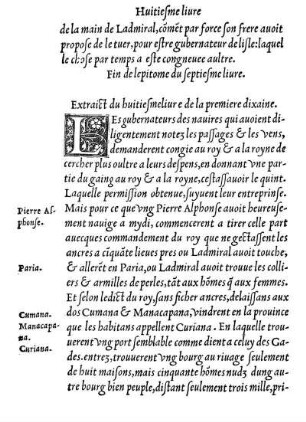 Huitiesme liure
de la main de Ladmiral, cõmẽt par force son frere auoit
propose de le tuer, pour estre gubernateur de lisle: laquel
le chose par temps a este congneue aultre.
Fin de lepitome du septiesme liure.
Extraict du huitiesmeliure de la premiere dixaine.
LEs gubernateurs des nauires qui auoient di-
ligentement notez les passages & les vens,
demanderent congie au roy & a la royne de
cercher plus oultre a leurs despens, en donnant vne par
tie du gaing au roy & a la royne, cestassauoir le quint.
Laquelle permission obtenue, suyuent leur entreprinse.
Pierre Al-
phonse.
Mais pour ce que vng Pierre Alphonse auoit heureuse-
ment nauige a mydi, commencerent a tirer celle part
auecques commandement du roy que ne gectassent les
ancres a cĩquãte lieues pres ou Ladmiral auoit touche,
Paria.
& allerẽt en Paria, ou Ladmiral auoit trouue les colli-
ers & armilles de perles, tãt aux hõmes q̃ aux femmes.
Et selon ledict du roy, sans ficher ancres, delaissans aux
Cumana.
Manacapa-
na.
Curiana.
dos Cumana & Manacapana, vindrent en la prouince
que les habitans appellent Curiana. En laquelle trou-
uerent vng port semblable comme dient a celuy des Ga-
des. entrez, trouuerent vng bourg au riuage seulement
de huit maisons, mais cinquante hõmes nudz dung au-
tre bourg bien peuple, distant seulement trois mille, pri-